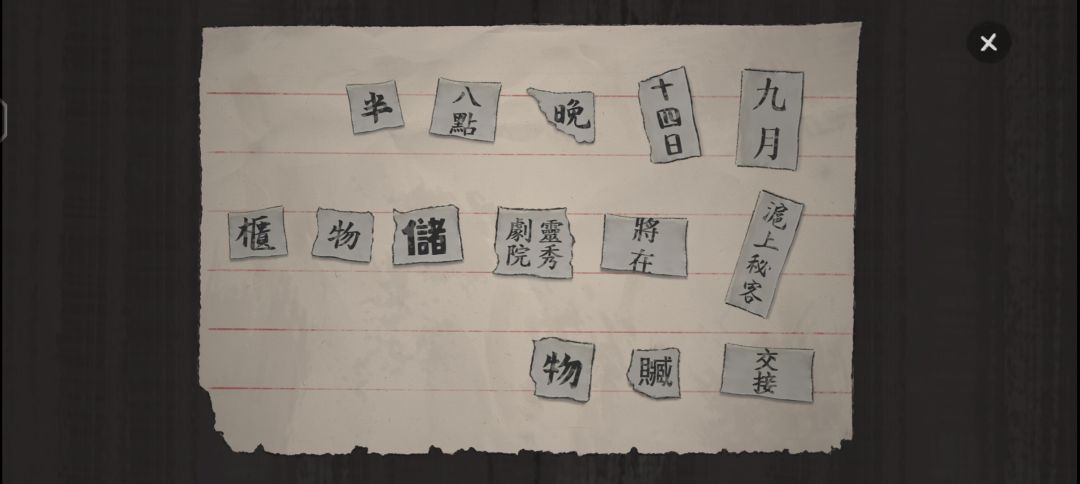 九月十四日晚八點半
滬上秘客將在靈秀劇院儲物櫃
交接贓物